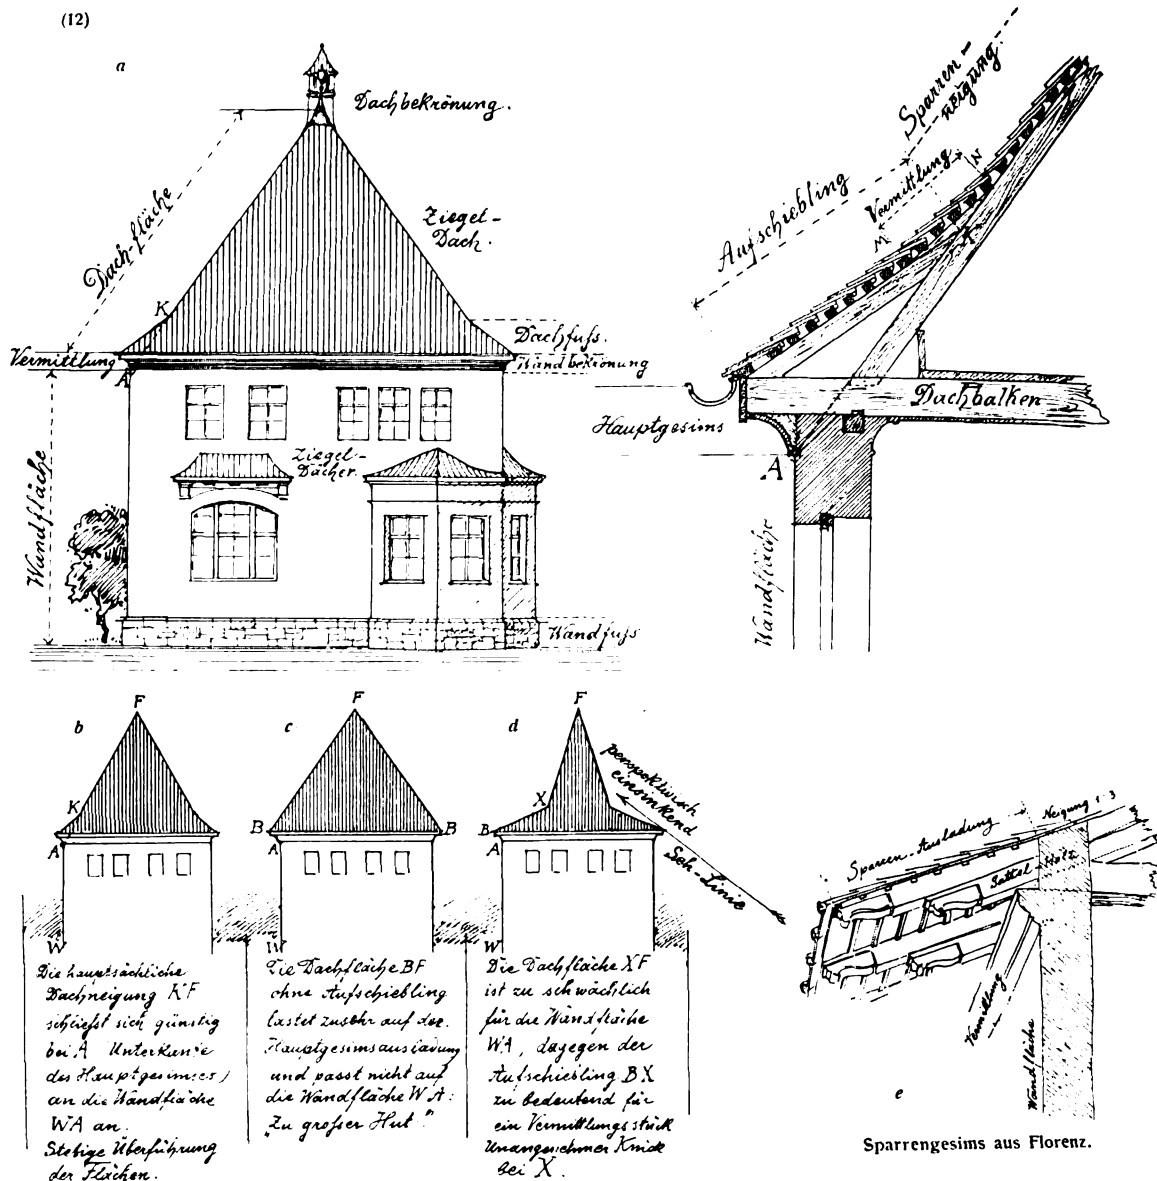 (12)
a
Dachbekrönung.
Dach-fläche
Ziegel-
Dach.
K
Dachfuss.
Vermittlung
Wandbekrönung
A
Ziegel-
Dächer
Wandfläche
Wandfuss
Sparren-
neigung.
Aufschiebling
Vermittlung
M
N
Dachbalken
Hauptgesims
A
Wandfläche
b
F
K
A
W
Die hauptsächliche
Dachneigung KF
schliefst sich günstig
bei A Unterkante
des Hauptgesimses)
an die Wandfläche
WA an.
Stetige Überführung
der Flächen.
c
F
B
B
A
W
Die Dachfläche BF
ohne Aufschiebling
lastet zusehr auf der.
Hauptgesimsausladung
und passt nicht auf
die Wandfläche WA:
„Zu grofser Hut."
d
F
X
B
A
W
perspektivisch
einsinkend
Seh-Linie
Die Dachfläche XF
ist zu schwächlich
für die Wandfläche
WA, dagegen der
Aufschiebling BX
zu bedeutend für
ein Vermittlungsstück
Unangenehmer Knick
bei X.
Sparren-Ausladung
Neigung 1:3
Sattel-Holz
Vermittlung
Wandfläche
e
Sparrengesims aus Florenz.